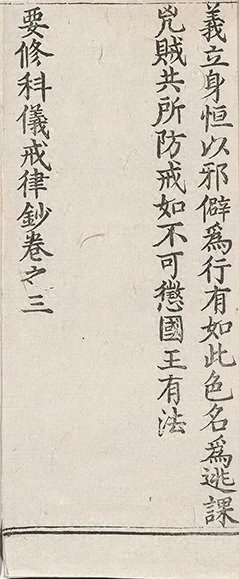 義立身恒以邪僻為行有如此色名為逃課
兇賊共所防戒如不可懲國王有法
要修科儀戒律鈔卷之三